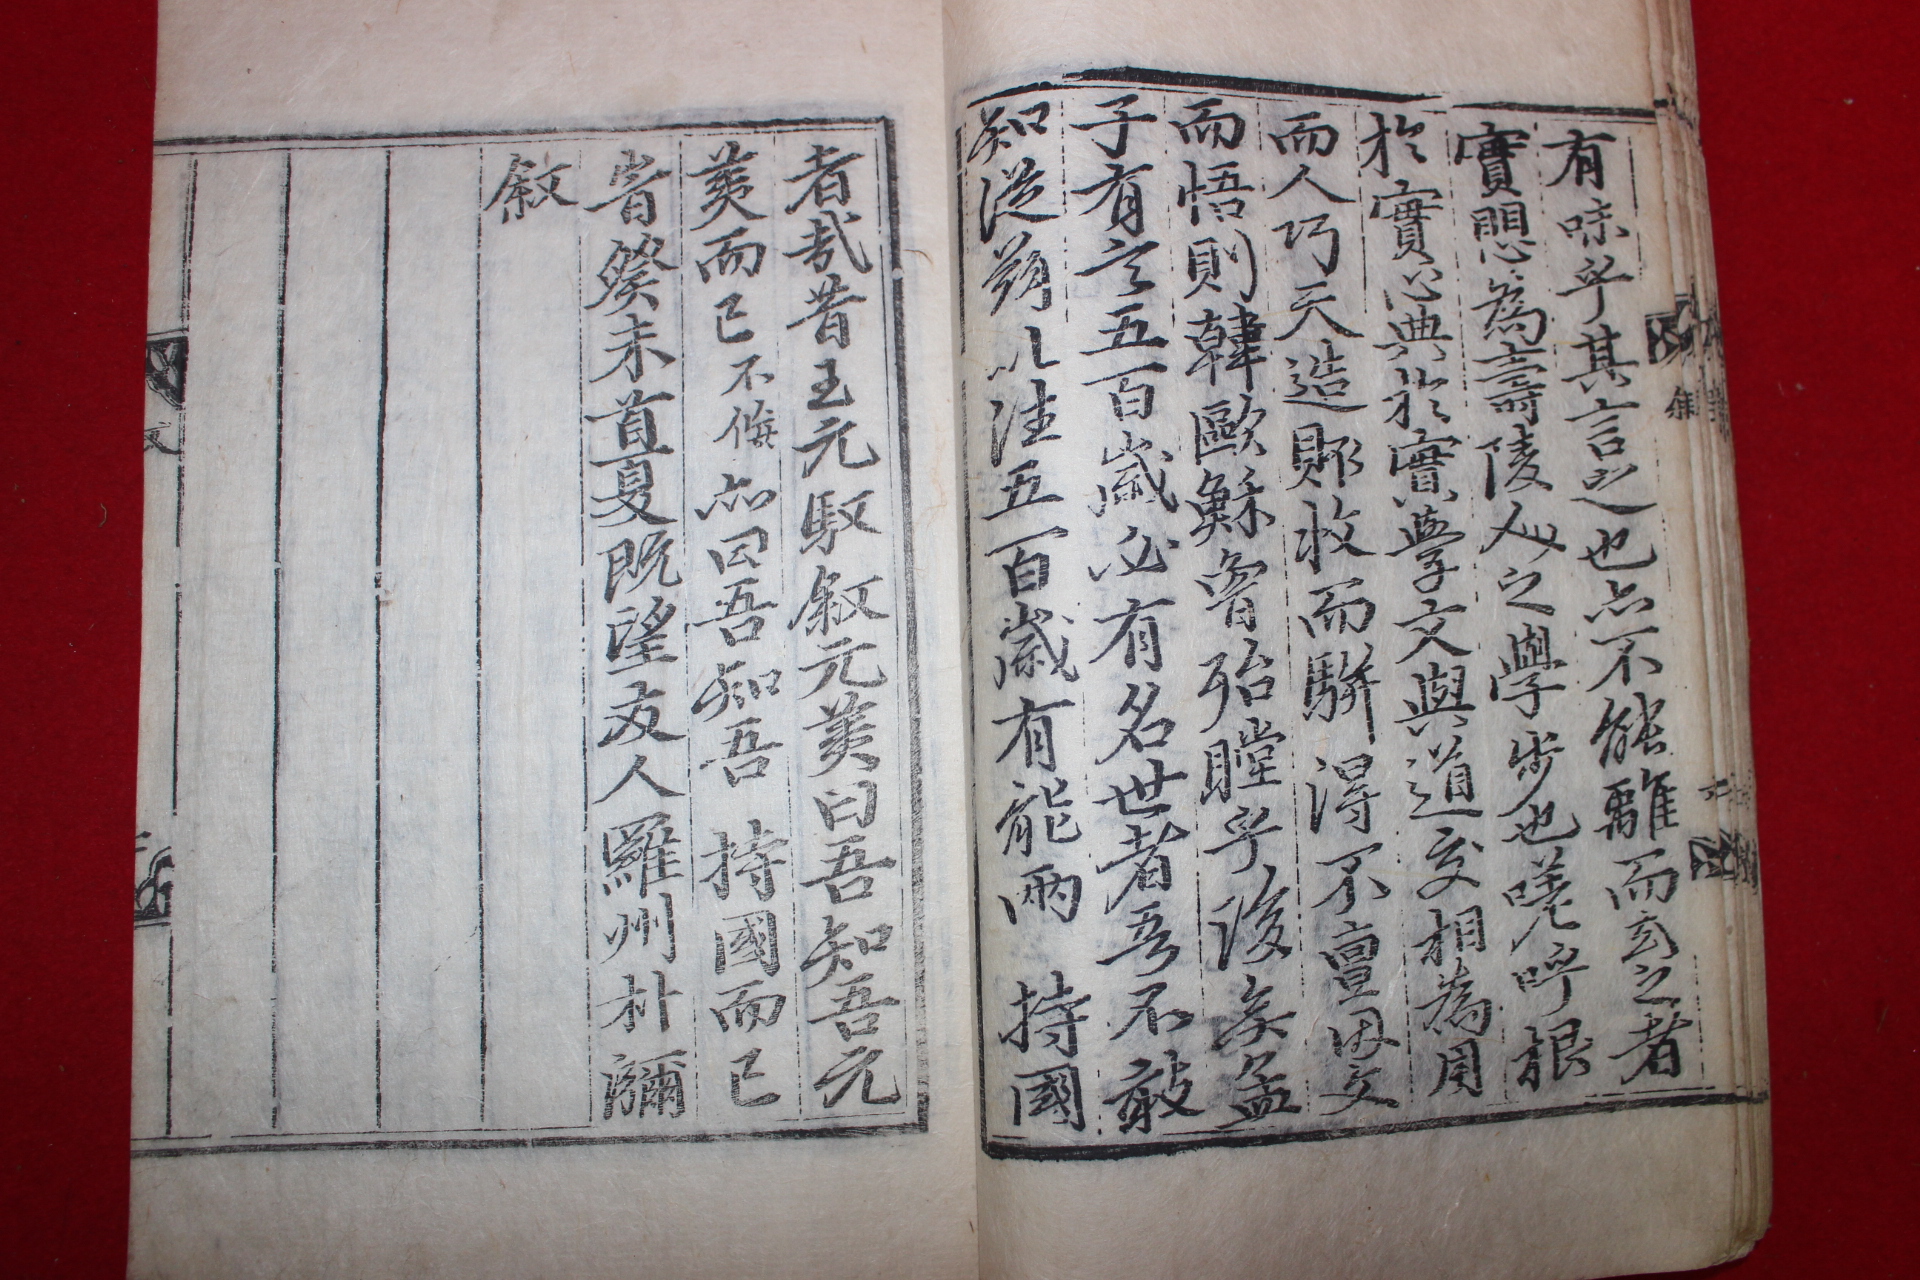 有味乎其言之也亦不能離而玄之者
實愳為壽陵人之學步也嗟呼根
於實心典於實學文與道交相為用
而人巧天造賅收而騈得不亶因文
而悟則韓歐蘇會殆瞠乎後矣孟
子有言五百歲必有名世者吾不敢
知從朔以往五百歲有能兩 持國
者哉昔王元馭叙元美曰吾知吾元
美而已不佞亦曰吾知吾 持國而已
旹癸未首夏既望友人羅州朴瀰
叙